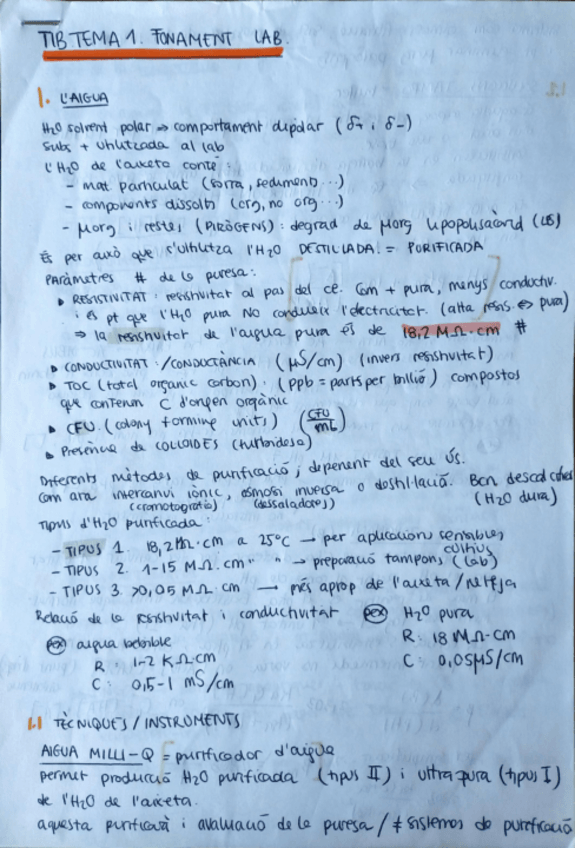 TIB TEMA 1. FONAMENT LAB.
1. L'AIGUA
H2O solvent polar ⇒ comportament dipolar (δ+ i δ-)
Subs + utilitzada al lab
L'H2O de l'aixeta conté:
- mat. particulat (sorra, sediments...)
- components dissolts (org, no org...)
- μorg i restes (PIRÒGENS): degrad de μorg lipopolisacàrid (LPS)
És per això que s'utilitza l'H2O DESTIL·LADA! = PURIFICADA
Paràmetres # de la puresa:
▸ RESISTIVITAT: resistivitat al pas del ce. Com + pura, menys conductiv.
i és pt que l'H2O pura NO condueix l'electricitat. (alta resis. ⇔ pura)
⇒ la resistivitat de l'aigua pura és de 18,2 MΩ·cm #
▸ CONDUCTIVITAT: /CONDUCTÀNCIA (μS/cm) (invers resistivitat)
▸ TOC (total organic carbon). (ppb = parts per billió) compostos
que contenen C d'origen orgànic
▸ CFU. (colony forming units) (CFU/mL)
▸ Presència de COL·LOIDES (turbidesa)
Diferents mètodes de purificació, depenent del seu ús.
Com ara intercanvi iònic, osmosi inversa o destil·lació. Bcn descalcifica
(cromatografia) (dessaladores) (H2O dura)
Tipus d'H2O purificada:
- TIPUS 1. 18,2 MΩ·cm a 25°C → per aplicacions sensibles
- TIPUS 2. 1-15 MΩ.cm " " → preparació tampons, cultius (lab)
- TIPUS 3. >0,05 MΩ.cm → més aprop de l'aixeta / neteja
Relació de la resistivitat i conductivitat pex H2O pura
pex aigua potable R: 18 MΩ·cm
R: 1-2 KΩ·cm C: 0,05μS/cm
C: 0,5-1 mS/cm
1.1 TÈCNIQUES / INSTRUMENTS
AIGUA MILLI-Q = purificador d'aigua
permet producció H2O purificada (tipus II) i ultrapura (tipus I)
de l'H2O de l'aixeta.
aquesta purificarà i avaluació de la puresa / ≠ sistemes de purificació